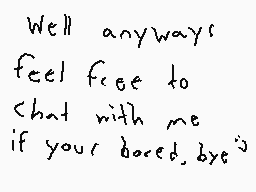 Well anyways
feel free to
chat with me
if your bored, bye :)